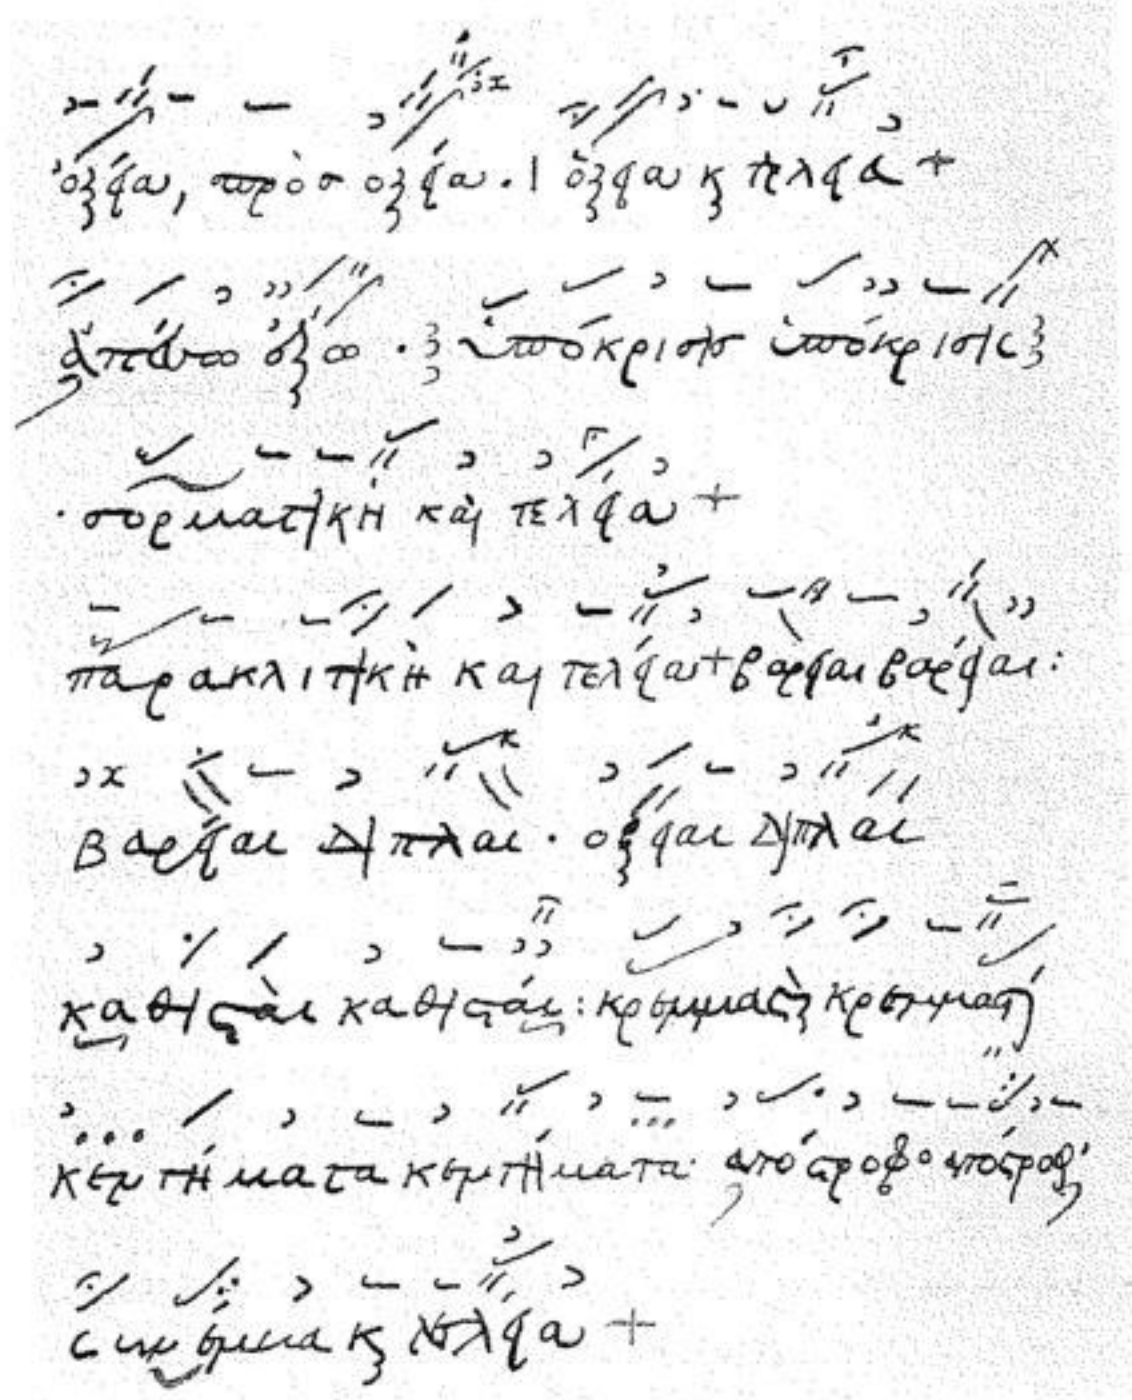 ὀξεῖα, πρὸσ οξεῖα · ὀξεῖα κ τελεία +
ἀπέσω ἔξω · ὑπόκρισισ ὑπόκρισις
· συρματικὴ καὶ τελεία +
παρακλιτικὴ καὶ τελεία + βαρεῖαι βαρεῖαι :
βαρεῖαι διπλαῖ · οξεῖαι διπλαῖ
καθισταὶ καθισταί : κρεμμαστὴ κρεμμαστή
κεντήματα κεντήματα · ἀπόστροφο ἀπόστροφ
συνέμμα κ τελεία +